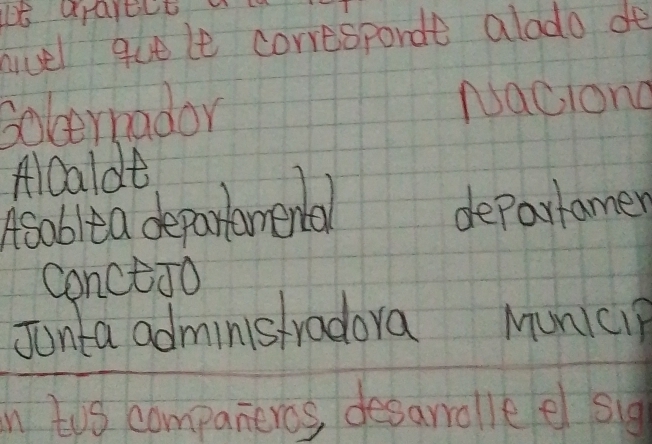 aparece a la
nivel que le corresponde alado de
Gobernador Naciona
Alcalde
Asablea departamental departamen
Concejo
Junta administradora Municip
n tus compañeros, desarrolle el sig